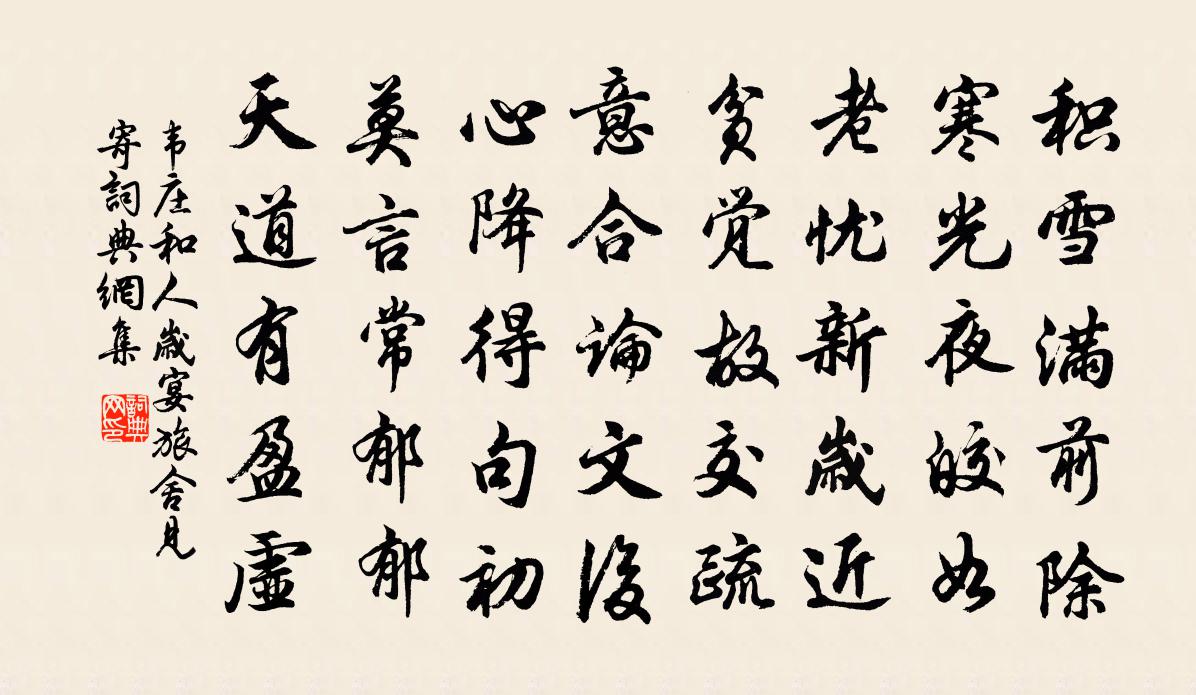 积雪满前除
寒光夜皎如
老忧新歳近
贫觉故交疏
意合論文後
心降得句初
莫言常郁郁
天道有盈虚
韦庄和人歳宴旅舍見
寄詞典網集
詞典
网印